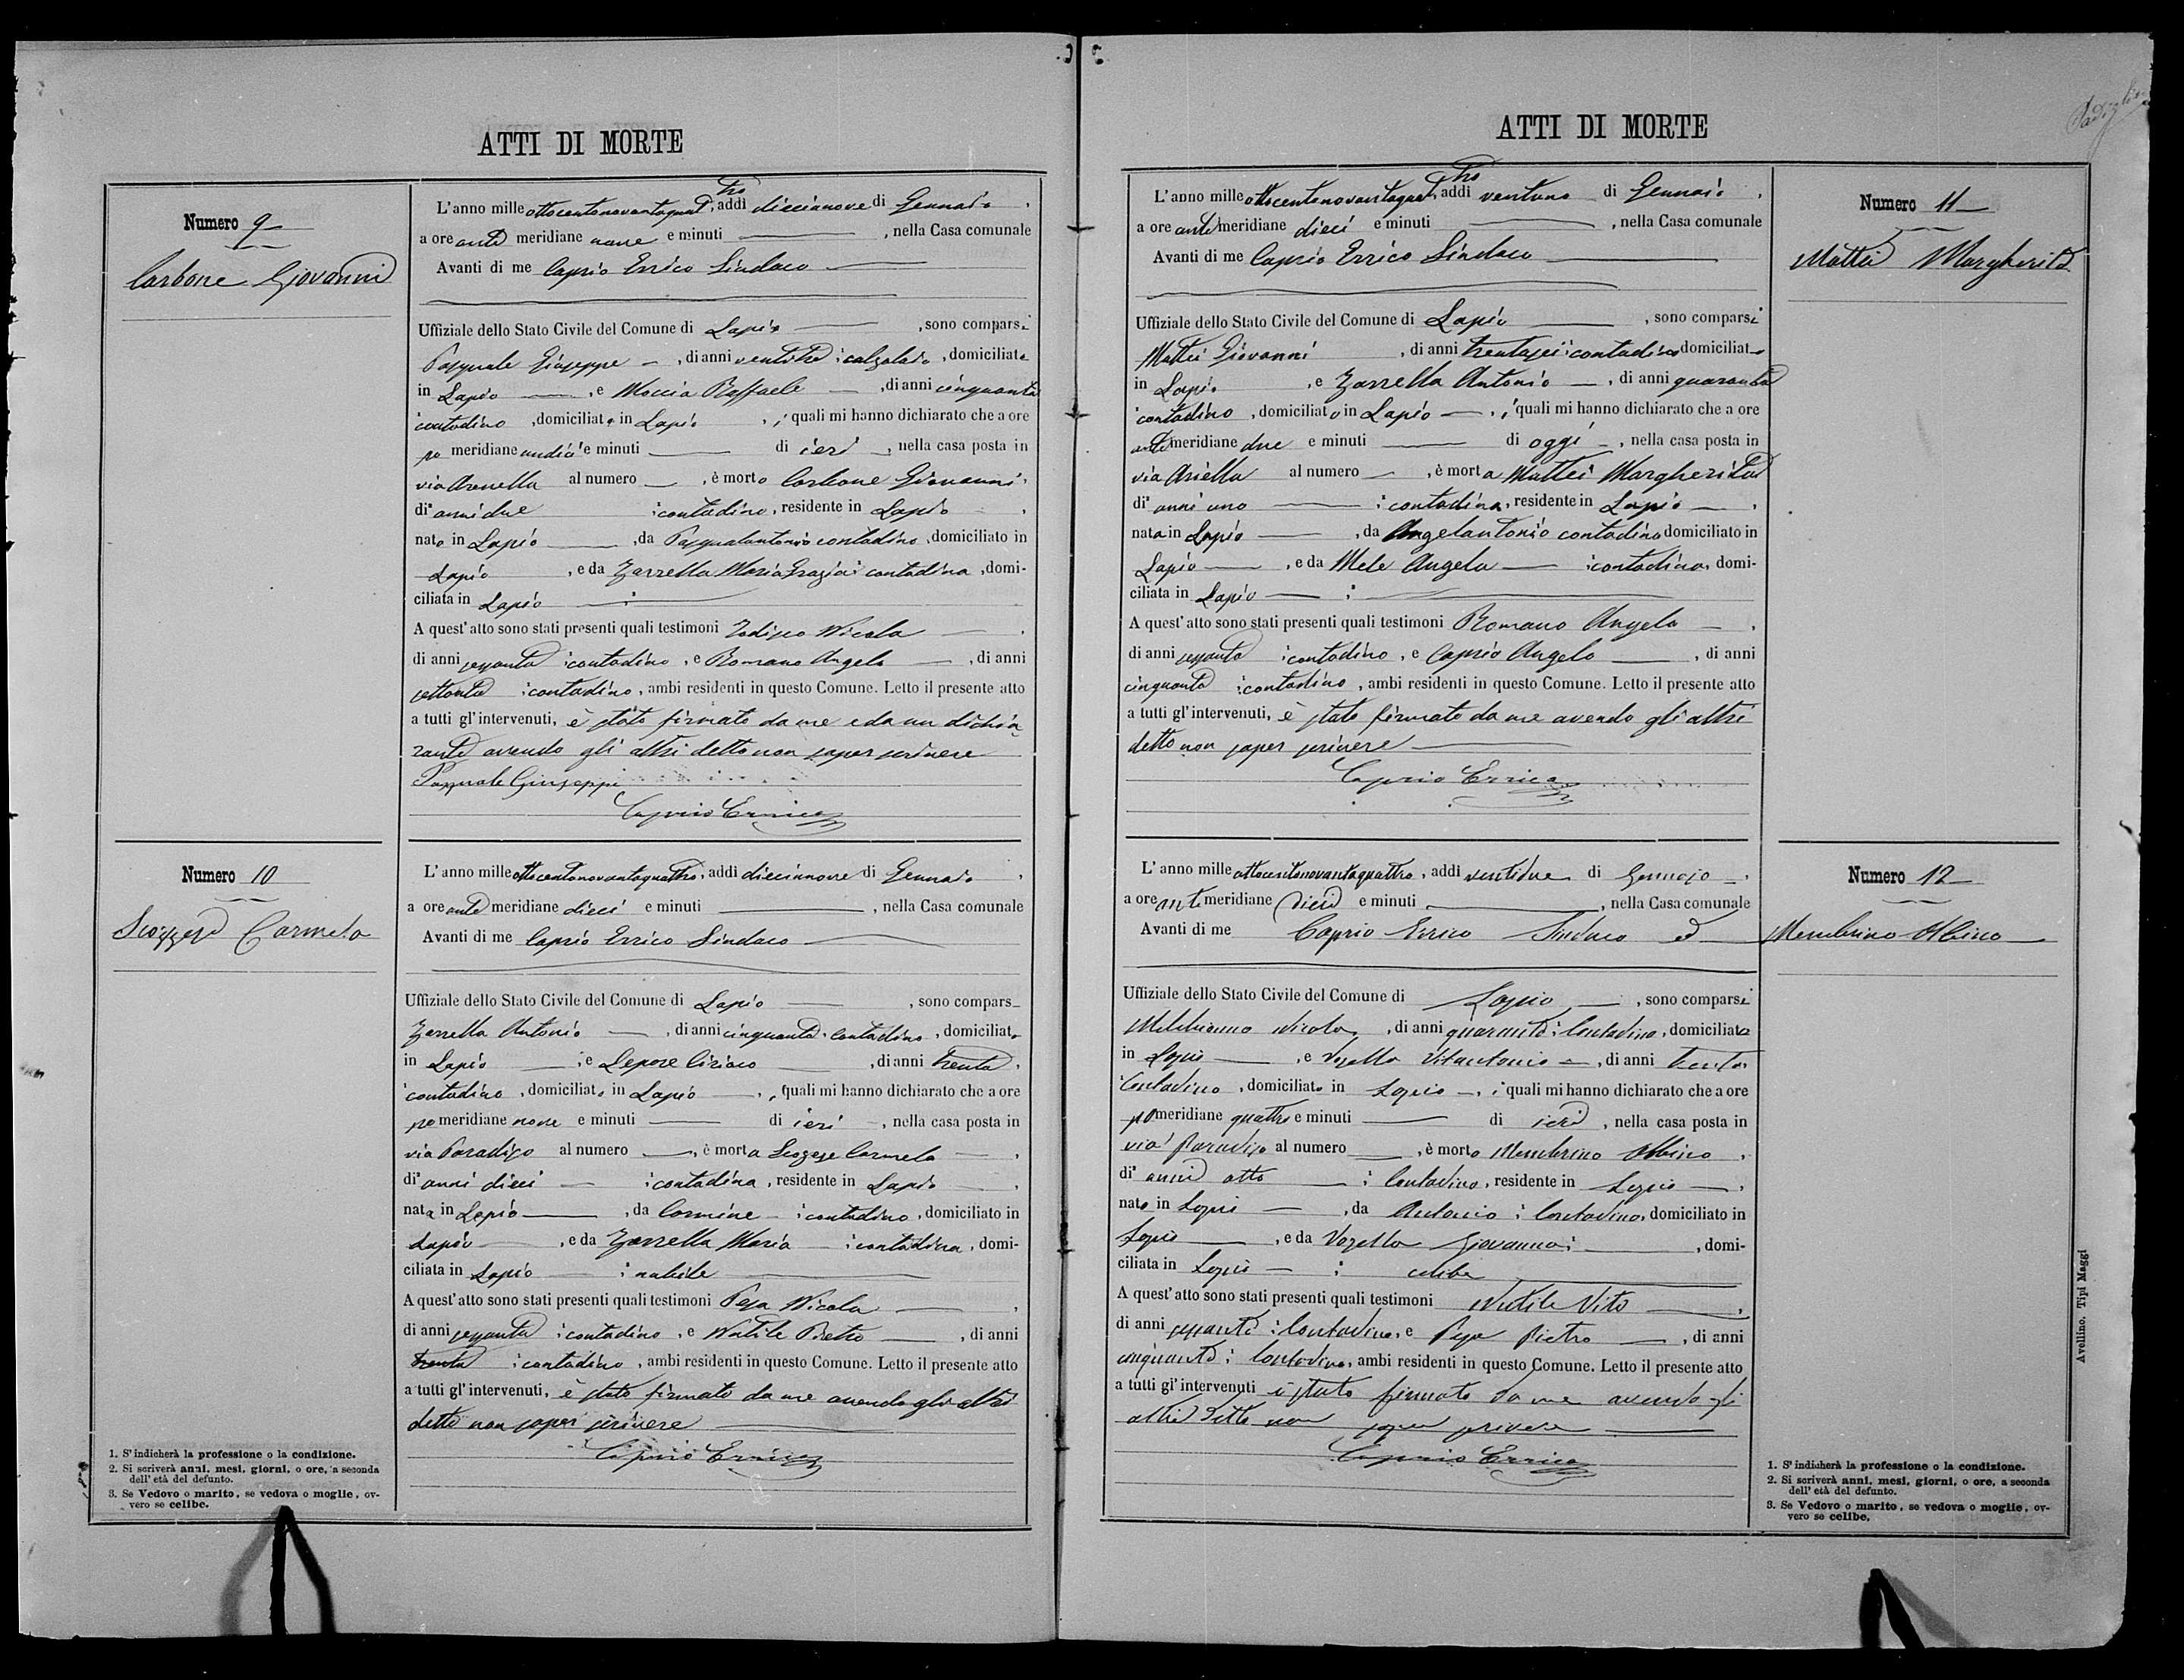 ATTI DI MORTE
Numero 9
Carbone Giovanni
L'anno mille ottocentonovantaquattro, addi diecianove di Gennaio,
a ore anti meridiane nove e minuti —, nella Casa comunale
Avanti di me Caprio Errico Sindaco
Uffiziale dello Stato Civile del Comune di Lapio —, sono comparsi
Pasquale Giuseppe —, di anni ventitre; calzolaio, domiciliato
in Lapio —, e Moccia Raffaele —, di anni cinquanta
contadino, domiciliato in Lapio, i quali mi hanno dichiarato che a ore
po meridiane undici e minuti — di ieri —, nella casa posta in
via Arenella al numero —, è morto Carbone Giovanni,
di anni due; contadino, residente in Lapio,
nato in Lapio —, da Pasqualantonio contadino, domiciliato in
Lapio, e da Zarrella Maria Grazia; contadina, domi-
ciliata in Lapio — ;
A quest'atto sono stati presenti quali testimoni Nicola —,
di anni sessanta; contadino, e Romano Angelo —, di anni
settanta; contadino, ambi residenti in questo Comune. Letto il presente atto
a tutti gl'intervenuti, è stato firmato da me e da un dichia
rante avendo gli altri detto non saper scrivere
Pasquale Giuseppe
Caprio Errico
Numero 10
Scozzese Carmela
L'anno mille ottocentonovantaquattro, addi diecinnove di Gennaio,
a ore anti meridiane dieci e minuti —, nella Casa comunale
Avanti di me Caprio Errico Sindaco
Uffiziale dello Stato Civile del Comune di Lapio —, sono compars
Zarrella Antonio —, di anni cinquanta; contadino, domiciliato
in Lapio —; e Lepore Ciriaco —, di anni trenta,
contadino, domiciliato in Lapio —, quali mi hanno dichiarato che a ore
po meridiane nove e minuti — di ieri —, nella casa posta in
via Paradiso al numero —, è morta Scozzese Carmela —,
di anni dieci —; contadina, residente in Lapio —,
nata in Lapio —, da Carmine —; contadino, domiciliato in
Lapio —, e da Zarrella Maria —; contadina, domi-
ciliata in Lapio —; nubile
A quest'atto sono stati presenti quali testimoni Pepa Nicola —,
di anni sessanta; contadino, e Nutile Pietro —, di anni
trenta; contadino, ambi residenti in questo Comune. Letto il presente atto
a tutti gl'intervenuti, è stato firmato da me avendo gli altri
detto non saper scrivere
Caprio Errico
1. S'indicherà la professione o la condizione.
2. Si scriverà anni, mesi, giorni, o ore, a seconda
dell'età del defunto.
3. Se Vedovo o marito, se vedova o moglie, ov-
vero se celibe.
ATTI DI MORTE
Numero 11
Mattei Margherita
L'anno mille ottocentonovantaquattro, addi ventuno di Gennaio,
a ore anti meridiane dieci e minuti —, nella Casa comunale
Avanti di me Caprio Errico Sindaco
Uffiziale dello Stato Civile del Comune di Lapio —, sono comparsi
Mattei Giovanni, di anni trentasei; contadino domiciliato
in Lapio, e Zarrella Antonio —, di anni quaranta
contadino, domiciliato in Lapio —, i quali mi hanno dichiarato che a ore
anti meridiane due e minuti — di oggi —, nella casa posta in
via Ariella al numero —, è morta Mattei Margherita
di anni uno —; contadina, residente in Lapio —,
nata in Lapio —, da Angelantonio contadino domiciliato in
Lapio —, e da Mele Angela —; contadina, domi-
ciliata in Lapio — ;
A quest'atto sono stati presenti quali testimoni Romano Angelo —,
di anni sessanta; contadino, e Caprio Angelo —, di anni
cinquanta; contadino, ambi residenti in questo Comune. Letto il presente atto
a tutti gl'intervenuti, è stato firmato da me avendo gli altri
detto non saper scrivere
Caprio Errico
Numero 12
Membrino Albino
L'anno mille ottocentonovantaquattro, addi ventidue di Gennajo —,
a ore anti meridiane dieci e minuti —, nella Casa comunale
Avanti di me Caprio Errico Sindaco
Uffiziale dello Stato Civile del Comune di Lapio —, sono comparsi
Nicola, di anni quaranta; Contadino, domiciliato
in Lapio —, e Vozella Vitantonio —, di anni trenta
Contadino, domiciliato in Lapio —, i quali mi hanno dichiarato che a ore
po meridiane quattro e minuti — di ieri, nella casa posta in
via Paradiso al numero —, è morto Membrino Albino,
di anni otto —; Contadino, residente in Lapio —,
nato in Lapio —, da Antonio; Contadino, domiciliato in
Lapio —, e da Vozella Giovanna; —, domi-
ciliata in Lapio —; celibe
A quest'atto sono stati presenti quali testimoni Nutile Vito —,
di anni sessanta; Contadino, e Pepa Pietro —, di anni
cinquanta; Contadino, ambi residenti in questo Comune. Letto il presente atto
a tutti gl'intervenuti è stato firmato da me avendo gli
altri detto non saper scrivere
Caprio Errico
1. S'indicherà la professione o la condizione.
2. Si scriverà anni, mesi, giorni, o ore, a seconda
dell'età del defunto.
3. Se Vedovo o marito, se vedova o moglie, ov-
vero se celibe.
Avellino, Tipi Maggi